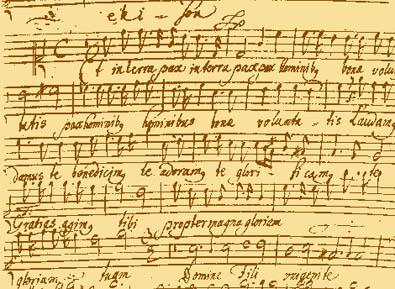 eki - son
Et in terra pax in terra pax pax hominib, bonæ volu
tatis pax hominib, hominibus bonæ volunta - tis Laudam,
damus te benedicim, te adoram, te glori - ficam, te
Gratias agim, tibi propter magna gloriam
gloriam tuam Domine Fili unigenite